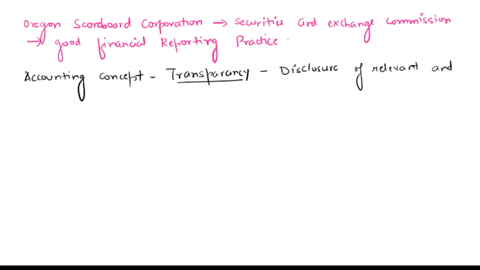 Oregon Scoreboard Corporation → Securities and exchange commission
→ good financial Reporting Practice.
Accounting concept - Transparancy - Disclosure of relevant and